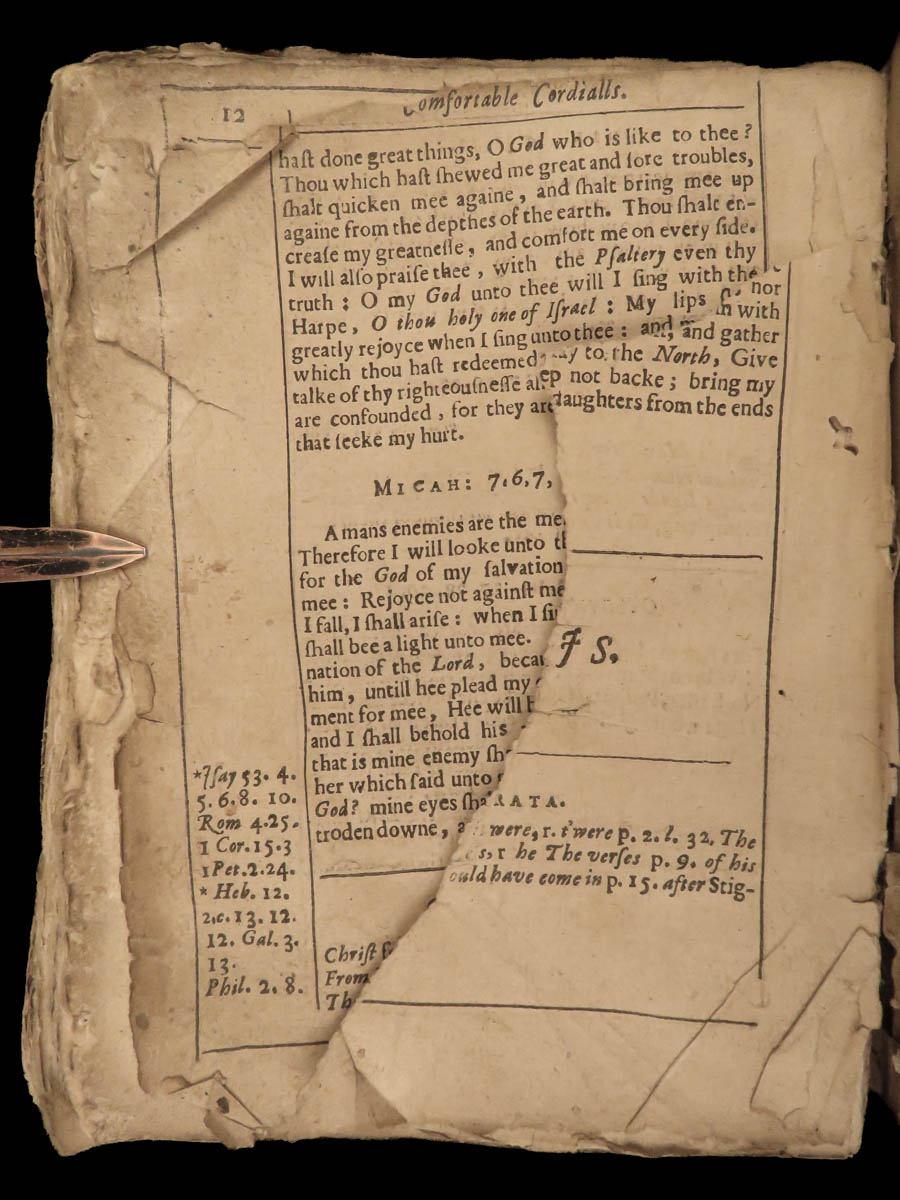 12
omfortable Cordialls.
haſt done great things, O God who is like to thee?
Thou which haſt ſhewed me great and ſore troubles,
ſhalt quicken mee againe, and ſhalt bring mee up
againe from the depthes of the earth. Thou ſhalt en-
creaſe my greatneſſe, and comfort me on every ſide.
I will alſo praiſe thee, with the Pſaltery even thy
truth: O my God unto thee will I ſing with the
Harpe, O thou holy one of Iſrael: My lips nor
greatly rejoyce when I ſing unto thee: and, with
which thou haſt redeemed and gather
talke of thy righteouſneſſe to the North, Give
are confounded, for they are ep not backe; bring my
that ſeeke my hurt. daughters from the ends
MICAH: 7.6,7,
A mans enemies are the me
Therefore I will looke unto
for the God of my ſalvation
mee: Rejoyce not againſt me
I fall, I ſhall ariſe: when I
ſhall bee a light unto mee.
nation of the Lord, becau
him, untill hee plead my
ment for mee, Hee will
and I ſhall behold his
that is mine enemy
her which ſaid unto
God? mine eyes
troden downe,
FS.
RATA.
were, r. t'were p. 2. l. 32. The
s, r he The verſes p. 9. of his
ould have come in p. 15. after Stig-
*Iſay 53. 4.
5. 6. 8. 10.
Rom 4.25.
1 Cor. 15.3
1 Pet. 2.24.
* Heb. 12.
2,c. 13. 12.
12. Gal. 3.
13.
Phil. 2. 8.
Chriſt
From
Th